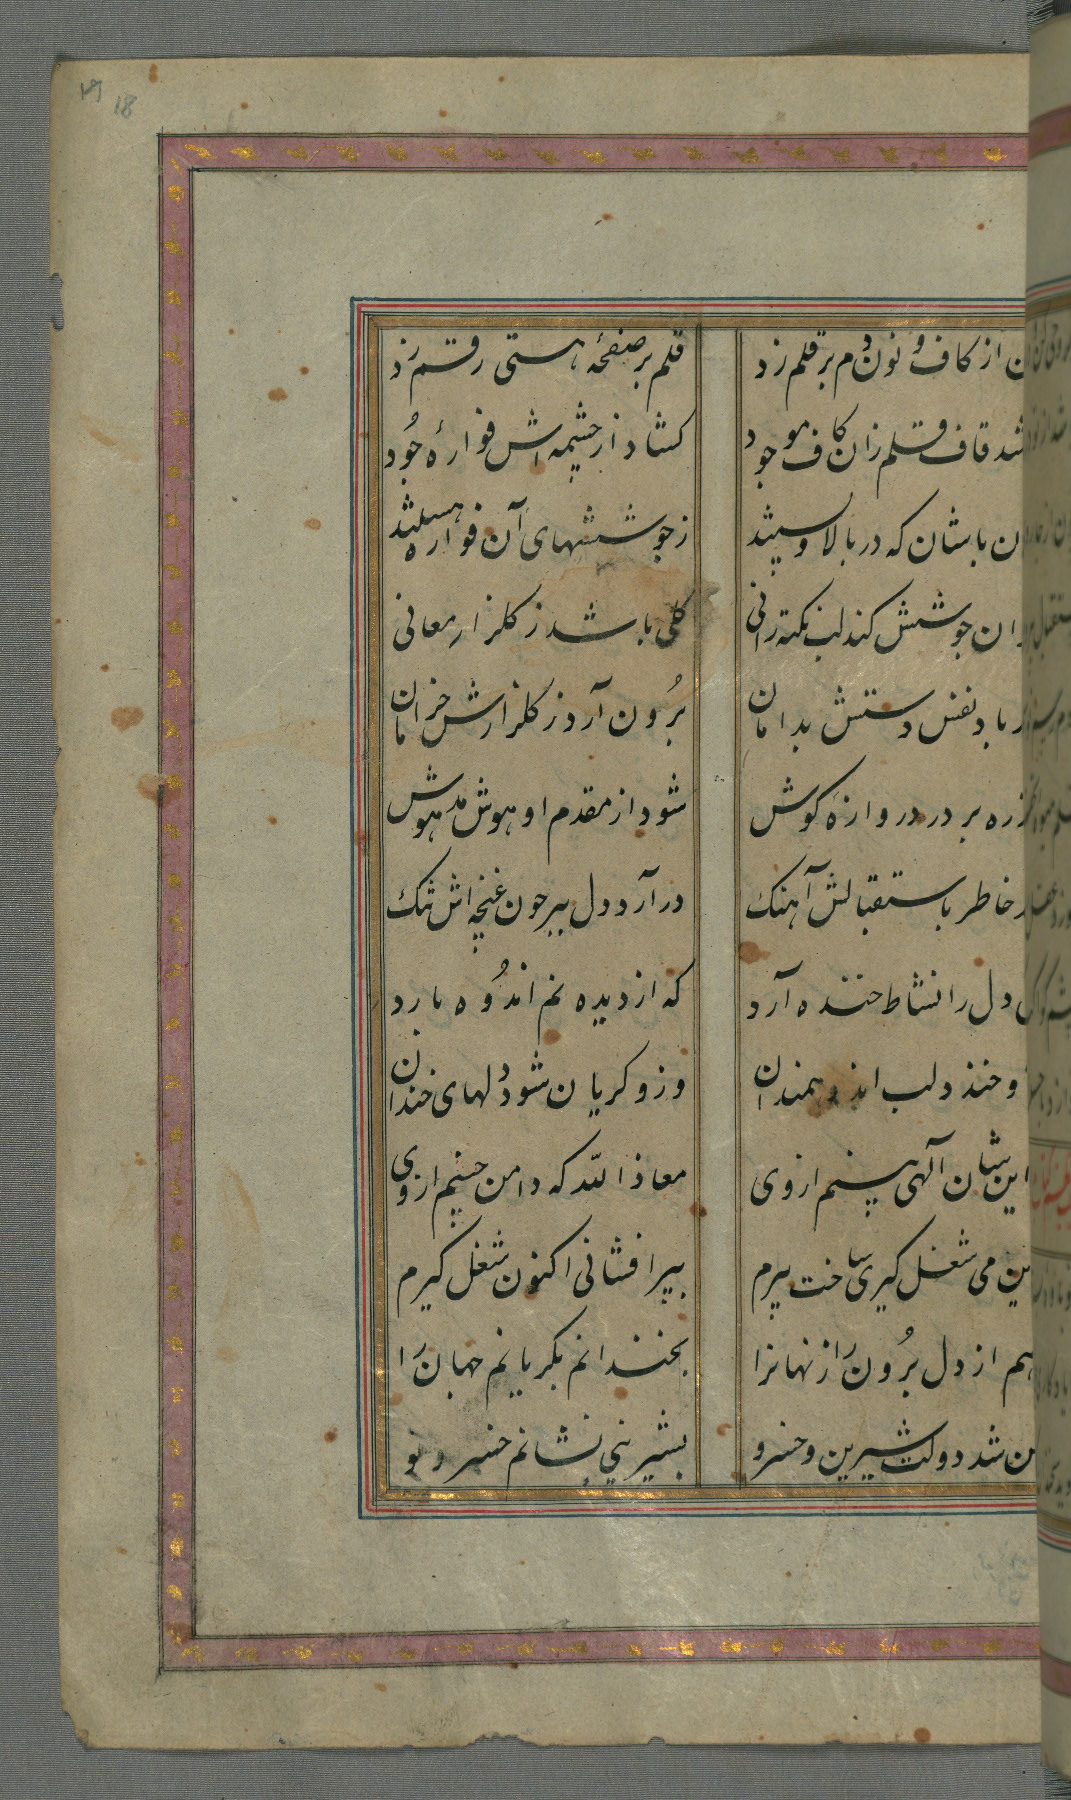 18
از کاف و نون دم بر قلم زد
قلم بر صفحهٔ هستی رقم زد
شد قاف قلم زان کاف موجود
کشاد از چشمه اش فوارهٔ جود
باشان که در بالا و پستند
ز جوششهای آن فواره هستند
جوشش کند لب نکته رانی
کلی باشد ز کلزار معانی
باد نفس دستش بدامان
برون آرد ز کلزارش خرامان
ره بر در دروازهٔ کوش
شود از مقدم او هوش مدهوش
خاطر باستقبالش آهنک
در آرد دل ببر چون غنچه اش تنک
دل را نشاط خنده آرد
که از دیده نم اندوه بارد
و خندد لب اندوهمندان
وزو کریان شود دلهای خندان
این شان آلهی بینم از وی
معاذ الله که دامن چینم از وی
می شغل کیری ساخت پیرم
بپیر افشانی اکنون شغل کیرم
هم از دل برون راز نهانرا
بخندانم بکریانم جهان را
شد دولت شیرین و خسرو
بشیرینی نشانم خسرو نو